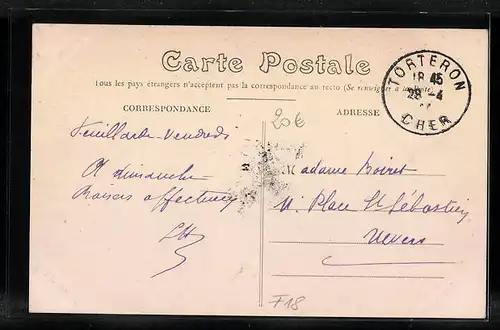 Carte Postale
Tous les pays étrangers n'acceptent pas la correspondance au recto (Se renseigner à la Poste)
CORRESPONDANCE
ADRESSE
TORTERON
18 45
28 - 4
CHER
20€
Feuillarde - Vendredi
A dimanche
Baisers affectueux
Madame Boiret
11, Place St Sébastien
Nevers
F18